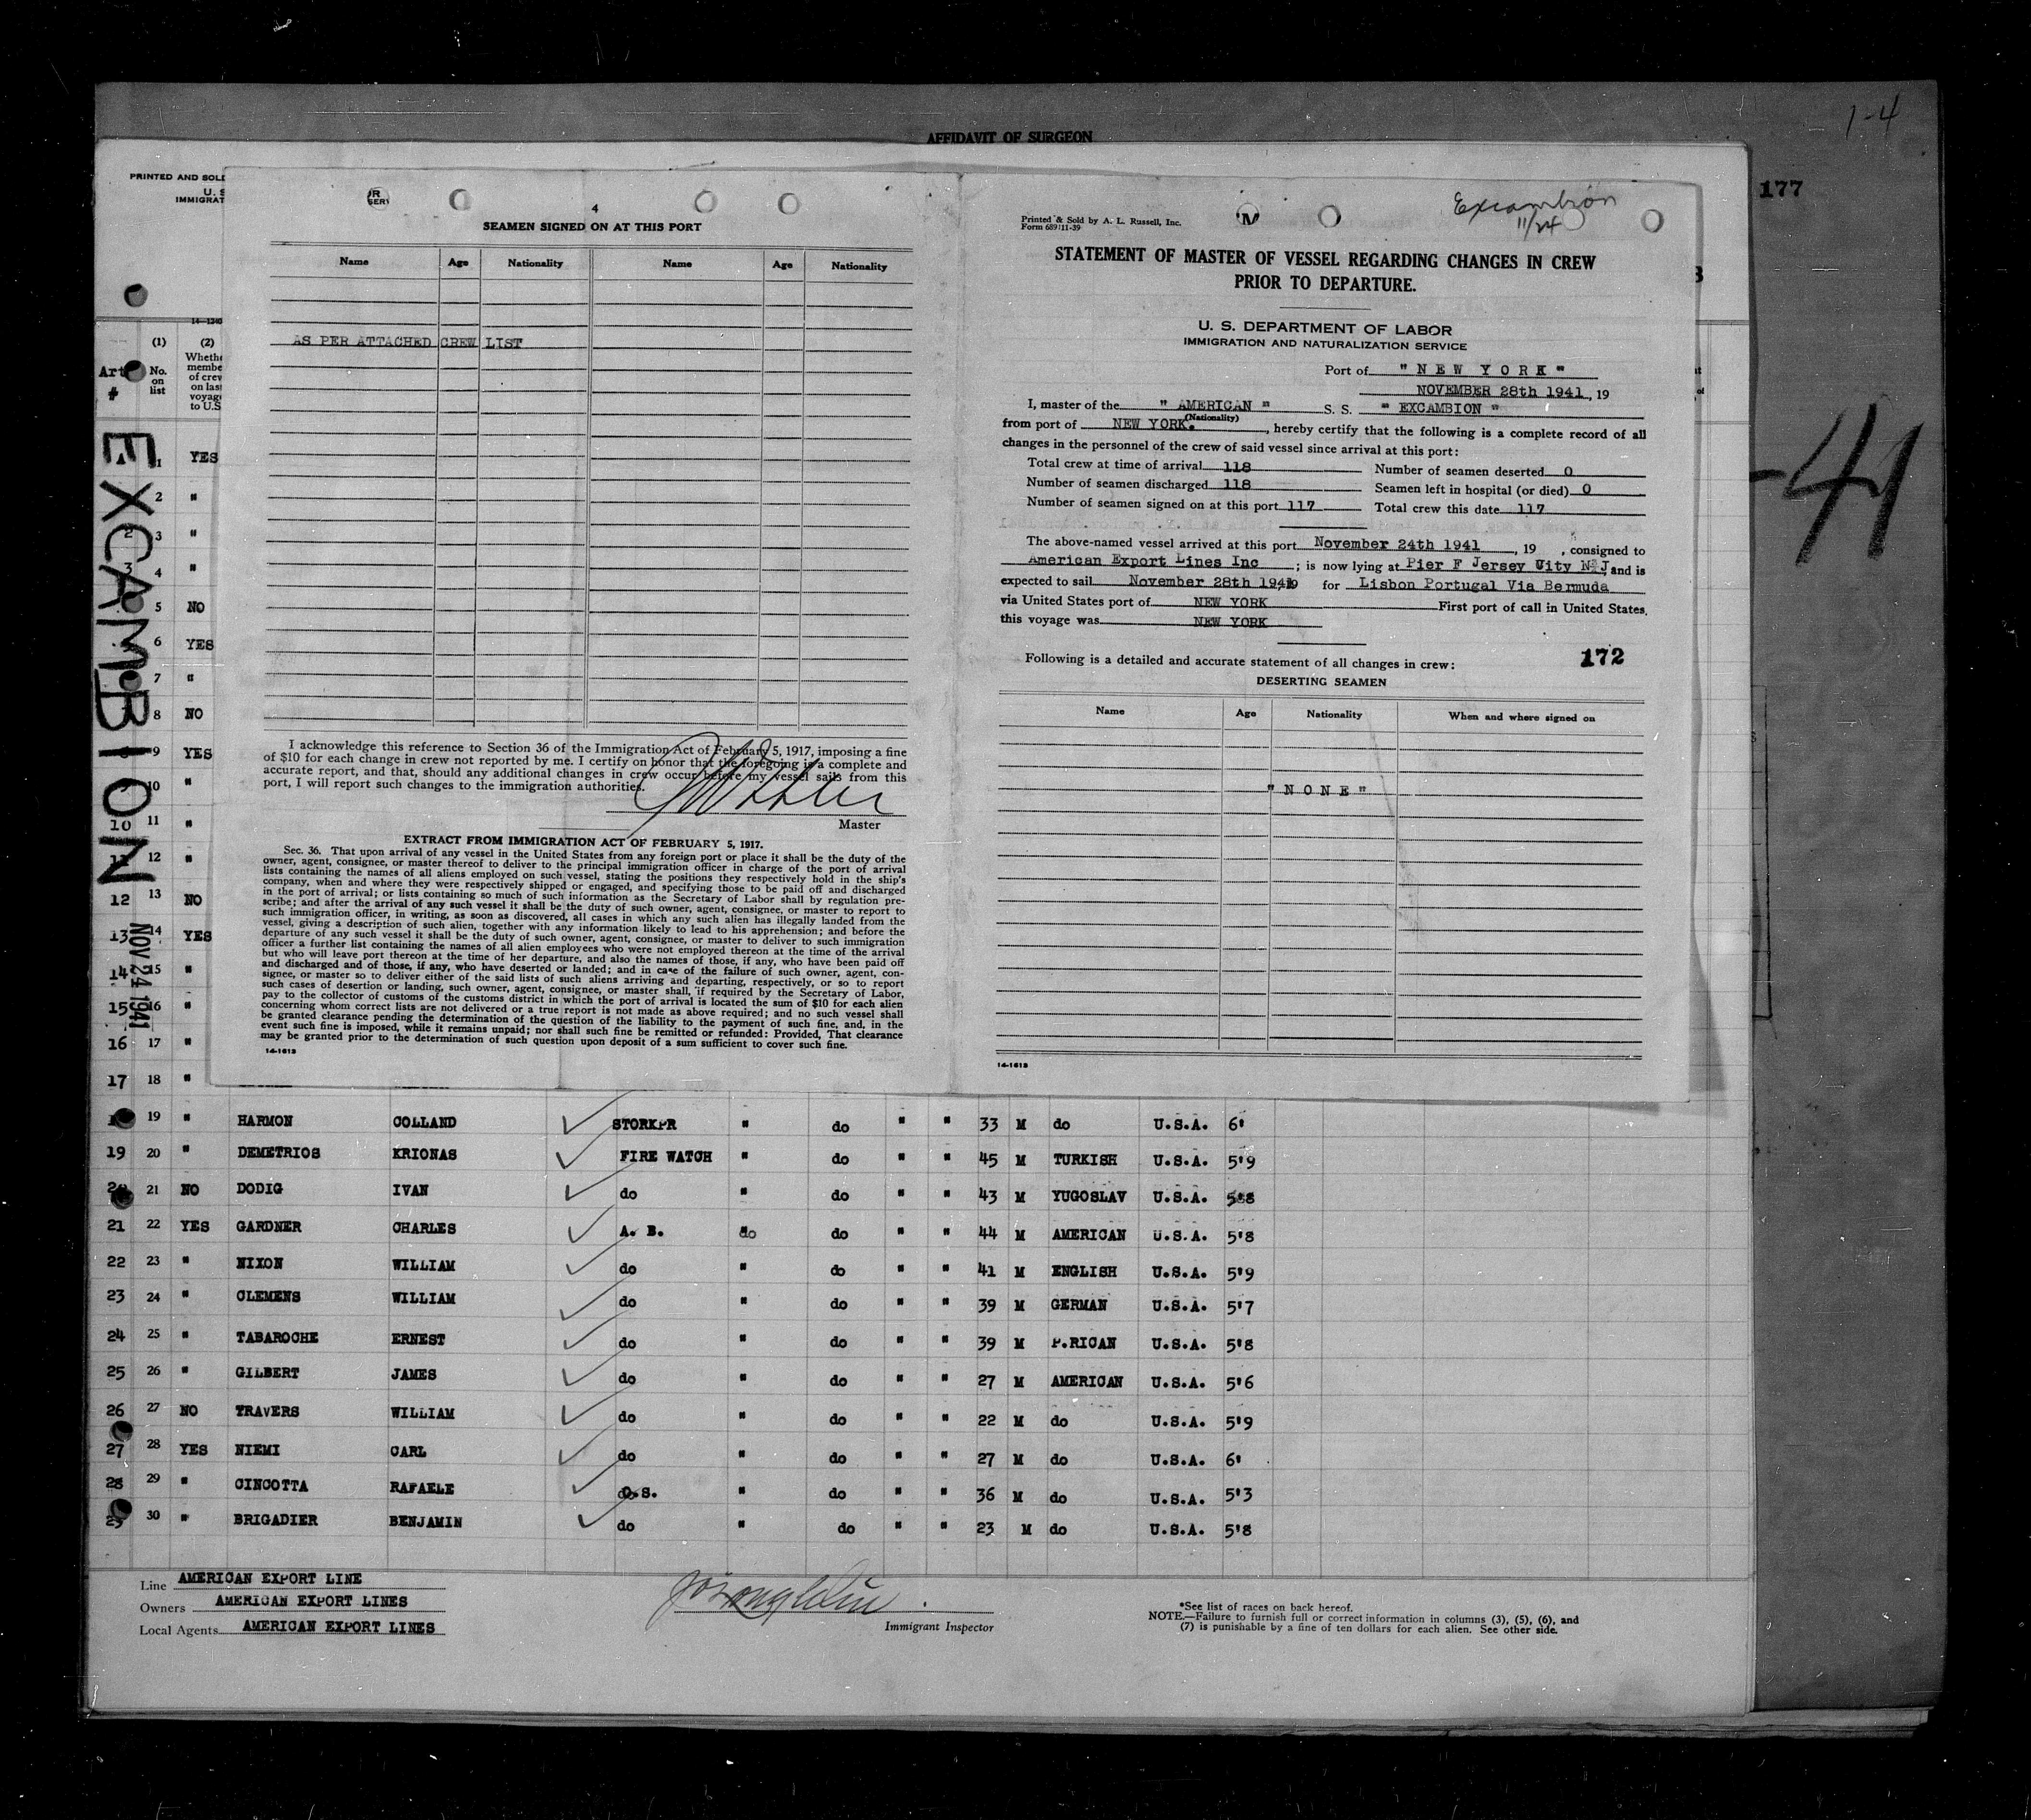 1-4
AFFIDAVIT OF SURGEON
177
PRINTED AND SOL
U. S
IMMIGRAT
-41
EXCAMBION
NOV 24 1941
4
SEAMEN SIGNED ON AT THIS PORT
Name Age Nationality Name Age Nationality
AS PER ATTACHED CREW LIST
I acknowledge this reference to Section 36 of the Immigration Act of February 5, 1917, imposing a fine
of $10 for each change in crew not reported by me. I certify on honor that the foregoing is a complete and
accurate report, and that, should any additional changes in crew occur before my vessel sails from this
port, I will report such changes to the immigration authorities.
Master
EXTRACT FROM IMMIGRATION ACT OF FEBRUARY 5, 1917.
Sec. 36. That upon arrival of any vessel in the United States from any foreign port or place it shall be the duty of the
owner, agent, consignee, or master thereof to deliver to the principal immigration officer in charge of the port of arrival
lists containing the names of all aliens employed on such vessel, stating the positions they respectively hold in the ship's
company, when and where they were respectively shipped or engaged, and specifying those to be paid off and discharged
in the port of arrival; or lists containing so much of such information as the Secretary of Labor shall by regulation pre-
scribe; and after the arrival of any such vessel it shall be the duty of such owner, agent, consignee, or master to report to
such immigration officer, in writing, as soon as discovered, all cases in which any such alien has illegally landed from the
vessel, giving a description of such alien, together with any information likely to lead to his apprehension; and before the
departure of any such vessel it shall be the duty of such owner, agent, consignee, or master to deliver to such immigration
officer a further list containing the names of all alien employees who were not employed thereon at the time of the arrival
but who will leave port thereon at the time of her departure, and also the names of those, if any, who have been paid off
and discharged and of those, if any, who have deserted or landed; and in case of the failure of such owner, agent, con-
signee, or master so to deliver either of the said lists of such aliens arriving and departing, respectively, or so to report
such cases of desertion or landing, such owner, agent, consignee, or master shall, if required by the Secretary of Labor,
pay to the collector of customs of the customs district in which the port of arrival is located the sum of $10 for each alien
concerning whom correct lists are not delivered or a true report is not made as above required; and no such vessel shall
be granted clearance pending the determination of the question of the liability to the payment of such fine, and, in the
event such fine is imposed, while it remains unpaid; nor shall such fine be remitted or refunded: Provided, That clearance
may be granted prior to the determination of such question upon deposit of a sum sufficient to cover such fine.
14-1613
Excambion
11/24
Printed & Sold by A. L. Russell, Inc.
Form 689:11-39
STATEMENT OF MASTER OF VESSEL REGARDING CHANGES IN CREW
PRIOR TO DEPARTURE.
U. S. DEPARTMENT OF LABOR
IMMIGRATION AND NATURALIZATION SERVICE
Port of " NEW YORK "
NOVEMBER 28th 1941, 19
I, master of the " AMERICAN " S. S. " EXCAMBION "
(Nationality)
from port of NEW YORK. , hereby certify that the following is a complete record of all
changes in the personnel of the crew of said vessel since arrival at this port:
Total crew at time of arrival 118 Number of seamen deserted 0
Number of seamen discharged 118 Seamen left in hospital (or died) 0
Number of seamen signed on at this port 117 Total crew this date 117
The above-named vessel arrived at this port November 24th 1941 , 19 , consigned to
American Export Lines Inc ; is now lying at Pier F Jersey City N.J, and is
expected to sail November 28th 1941, 19 for Lisbon Portugal Via Bermuda
via United States port of NEW YORK First port of call in United States,
this voyage was NEW YORK
Following is a detailed and accurate statement of all changes in crew: 172
DESERTING SEAMEN
Name Age Nationality When and where signed on
" NONE "
14-1613
Art # (1) No. on list (2) Whethe membe of crew on las voyag to U.S
1 YES
2 "
2 3 "
3 4 "
5 NO
6 YES
7 "
8 NO
9 YES
10 "
10 11 "
12 "
12 13 NO
13 14 YES
14 15 "
15 16 "
16 17 "
17 18 "
19 " HARMON COLLAND STORKPR " do " " 33 M do U.S.A. 6'
19 20 " DEMETRIOS KRIONAS FIRE WATCH " do " " 45 M TURKISH U.S.A. 5'9
20 21 NO DODIG IVAN do " do " " 43 M YUGOSLAV U.S.A. 5'8
21 22 YES GARDNER CHARLES A. B. do do " " 44 M AMERICAN U.S.A. 5'8
22 23 " NIXON WILLIAM do " do " " 41 M ENGLISH U.S.A. 5'9
23 24 " CLEMENS WILLIAM do " do " " 39 M GERMAN U.S.A. 5'7
24 25 " TABAROCHE ERNEST do " do " " 39 M P.RICAN U.S.A. 5'8
25 26 " GILBERT JAMES do " do " " 27 M AMERICAN U.S.A. 5'6
26 27 NO TRAVERS WILLIAM do " do " " 22 M do U.S.A. 5'9
27 28 YES NIEMI CARL do " do " " 27 M do U.S.A. 6'
28 29 " CINCOTTA RAFAELE O.S. " do " " 36 M do U.S.A. 5'3
29 30 " BRIGADIER BENJAMIN do " do " " 23 M do U.S.A. 5'8
Line AMERICAN EXPORT LINE
Owners AMERICAN EXPORT LINES
Local Agents AMERICAN EXPORT LINES
Immigrant Inspector
*See list of races on back hereof.
NOTE.—Failure to furnish full or correct information in columns (3), (5), (6), and
(7) is punishable by a fine of ten dollars for each alien. See other side.